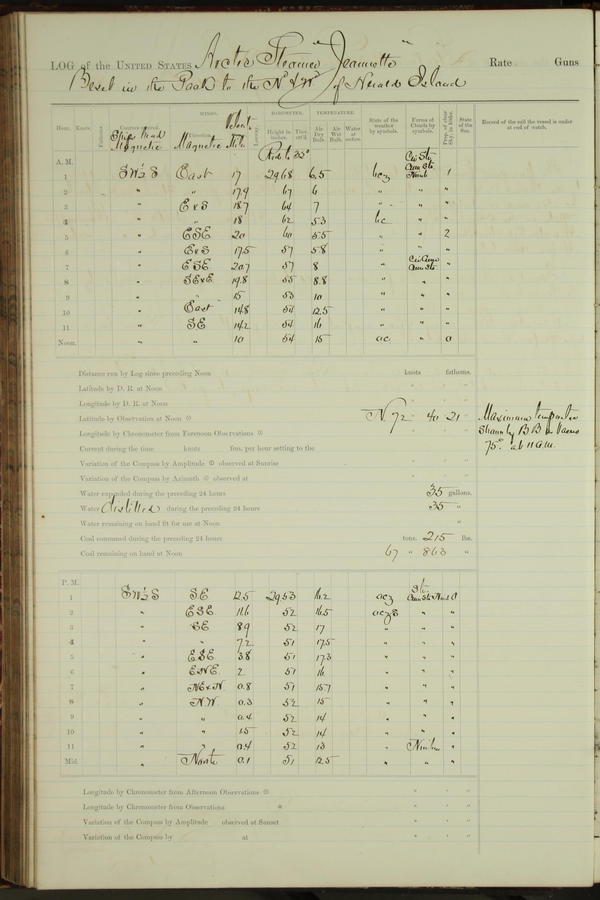 LOG of the UNITED STATES Arctic Steamer "Jeannette" Rate Guns
Beset in the Pack to the Nd & Wd of Herald Island
WINDS. BAROMETER. TEMPERATURE.
Hour. Knots. Fathoms. Direction. Leeway. Height in inches. Ther. att'd. Air Dry Bulb. Air Wet Bulb. Water at surface. State of the weather by symbols. Forms of Clouds by symbols. Prop. of clear Sky, in 10ths. State of the Sea. Record of the sail the vessel is under at end of watch.
Ship's head Magnetic Magnetic Velocity
A. M. Red. to 32°
1 SW½S East 17 29.68 6.5 bcz Cir Stra Cum Stra Nimb 1
2 " " 17.9 67 6 " " "
3 " E x S 18.7 64 7 " " "
4 " " 18 62 5.3 bc " "
5 " ESE 20 60 5.5 " " 2
6 " E x S 17.5 57 5.8 " " "
7 " ESE 20.7 57 8 " Cir Cum Cum Stra "
8 " SE x E 19.8 55 8.8 " " "
9 " " 15 53 10 " " "
10 " East 14.8 54 12.5 " " "
11 " SE 14.2 54 16 " " "
Noon. " " 10 54 15 oc. " 0
Distance run by Log since preceding Noon knots fathoms.
Latitude by D. R. at Noon
Longitude by D. R. at Noon
Latitude by Observation at Noon N. 72 40 21
Longitude by Chronometer from Forenoon Observations
Current during the time knots fms. per hour setting to the
Variation of the Compass by Amplitude observed at Sunrise
Variation of the Compass by Azimuth observed at
Water expended during the preceding 24 hours 35 gallons.
Water distilled during the preceding 24 hours 35 "
Water remaining on hand fit for use at Noon "
Coal consumed during the preceding 24 hours tons. 215 lbs.
Coal remaining on hand at Noon 67 " 863 "
Maximum temperature
shown by B B in vacuo
75° at 11 a.m.
P. M.
1 SW½S SE 12.5 29.53 16.2 ocz Str Cum Str & Nimb 0
2 " ESE 11.6 52 16.5 " "
3 " SE 8.9 52 17 " " "
4 " " 7.2 51 17.5 " " "
5 " ESE 3.8 51 17.3 " " "
6 " ENE 2 51 16 " " "
7 " NE x N 0.8 51 15.7 " " "
8 " N.W. 0.3 52 15 " " "
9 " " 0.4 52 14 " " "
10 " " 1.5 52 14 " " "
11 " " 0.4 52 13 " Nimbus "
Mid. " North 0.1 51 12.5 " " "
Longitude by Chronometer from Afternoon Observations
Longitude by Chronometer from Observations
Variation of the Compass by Amplitude observed at Sunset
Variation of the Compass by at